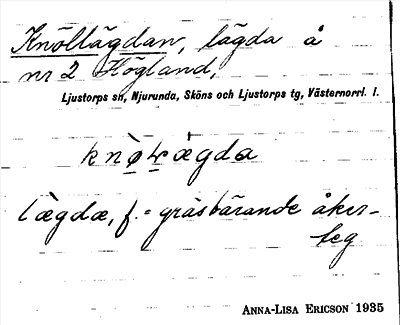 Knöllägdan, lägda å
nr 2 Högland,
Ljustorps sn, Njurunda, Sköns och Ljustorps tg, Västernorrl. l.
lägdæ, f. = gräsbärande åker-
teg
ANNA-LISA ERICSON 1935